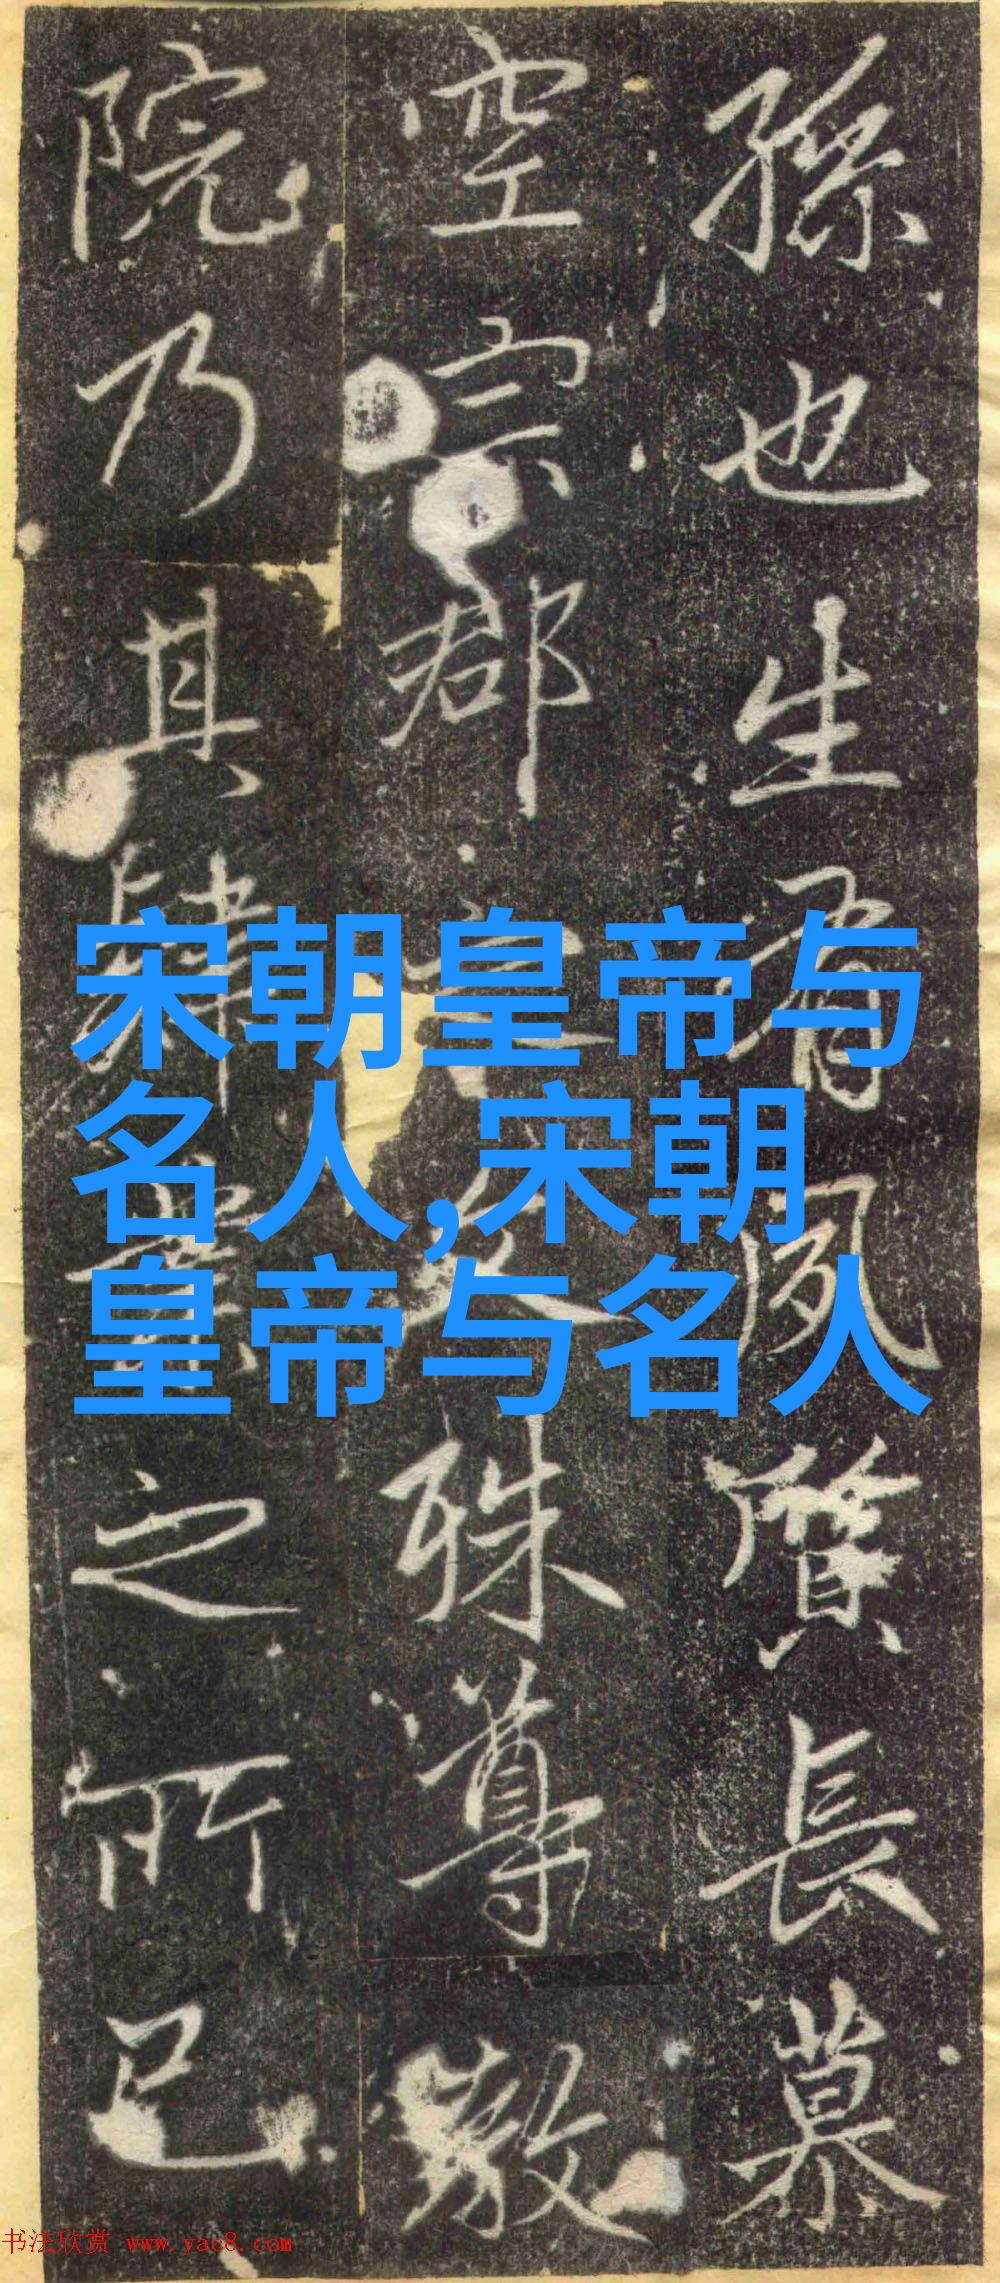 孫也生有夙質長慕
空宗郡文殊尊
院乃其肆業之所已
宋朝皇帝与
名人,宋朝
皇帝与名人
书法欣赏 www.yac8.com